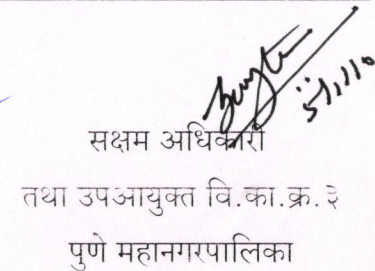 सक्षम अधिकारी
तथा उपआयुक्त वि.का.क्र.३
पुणे महानगरपालिका